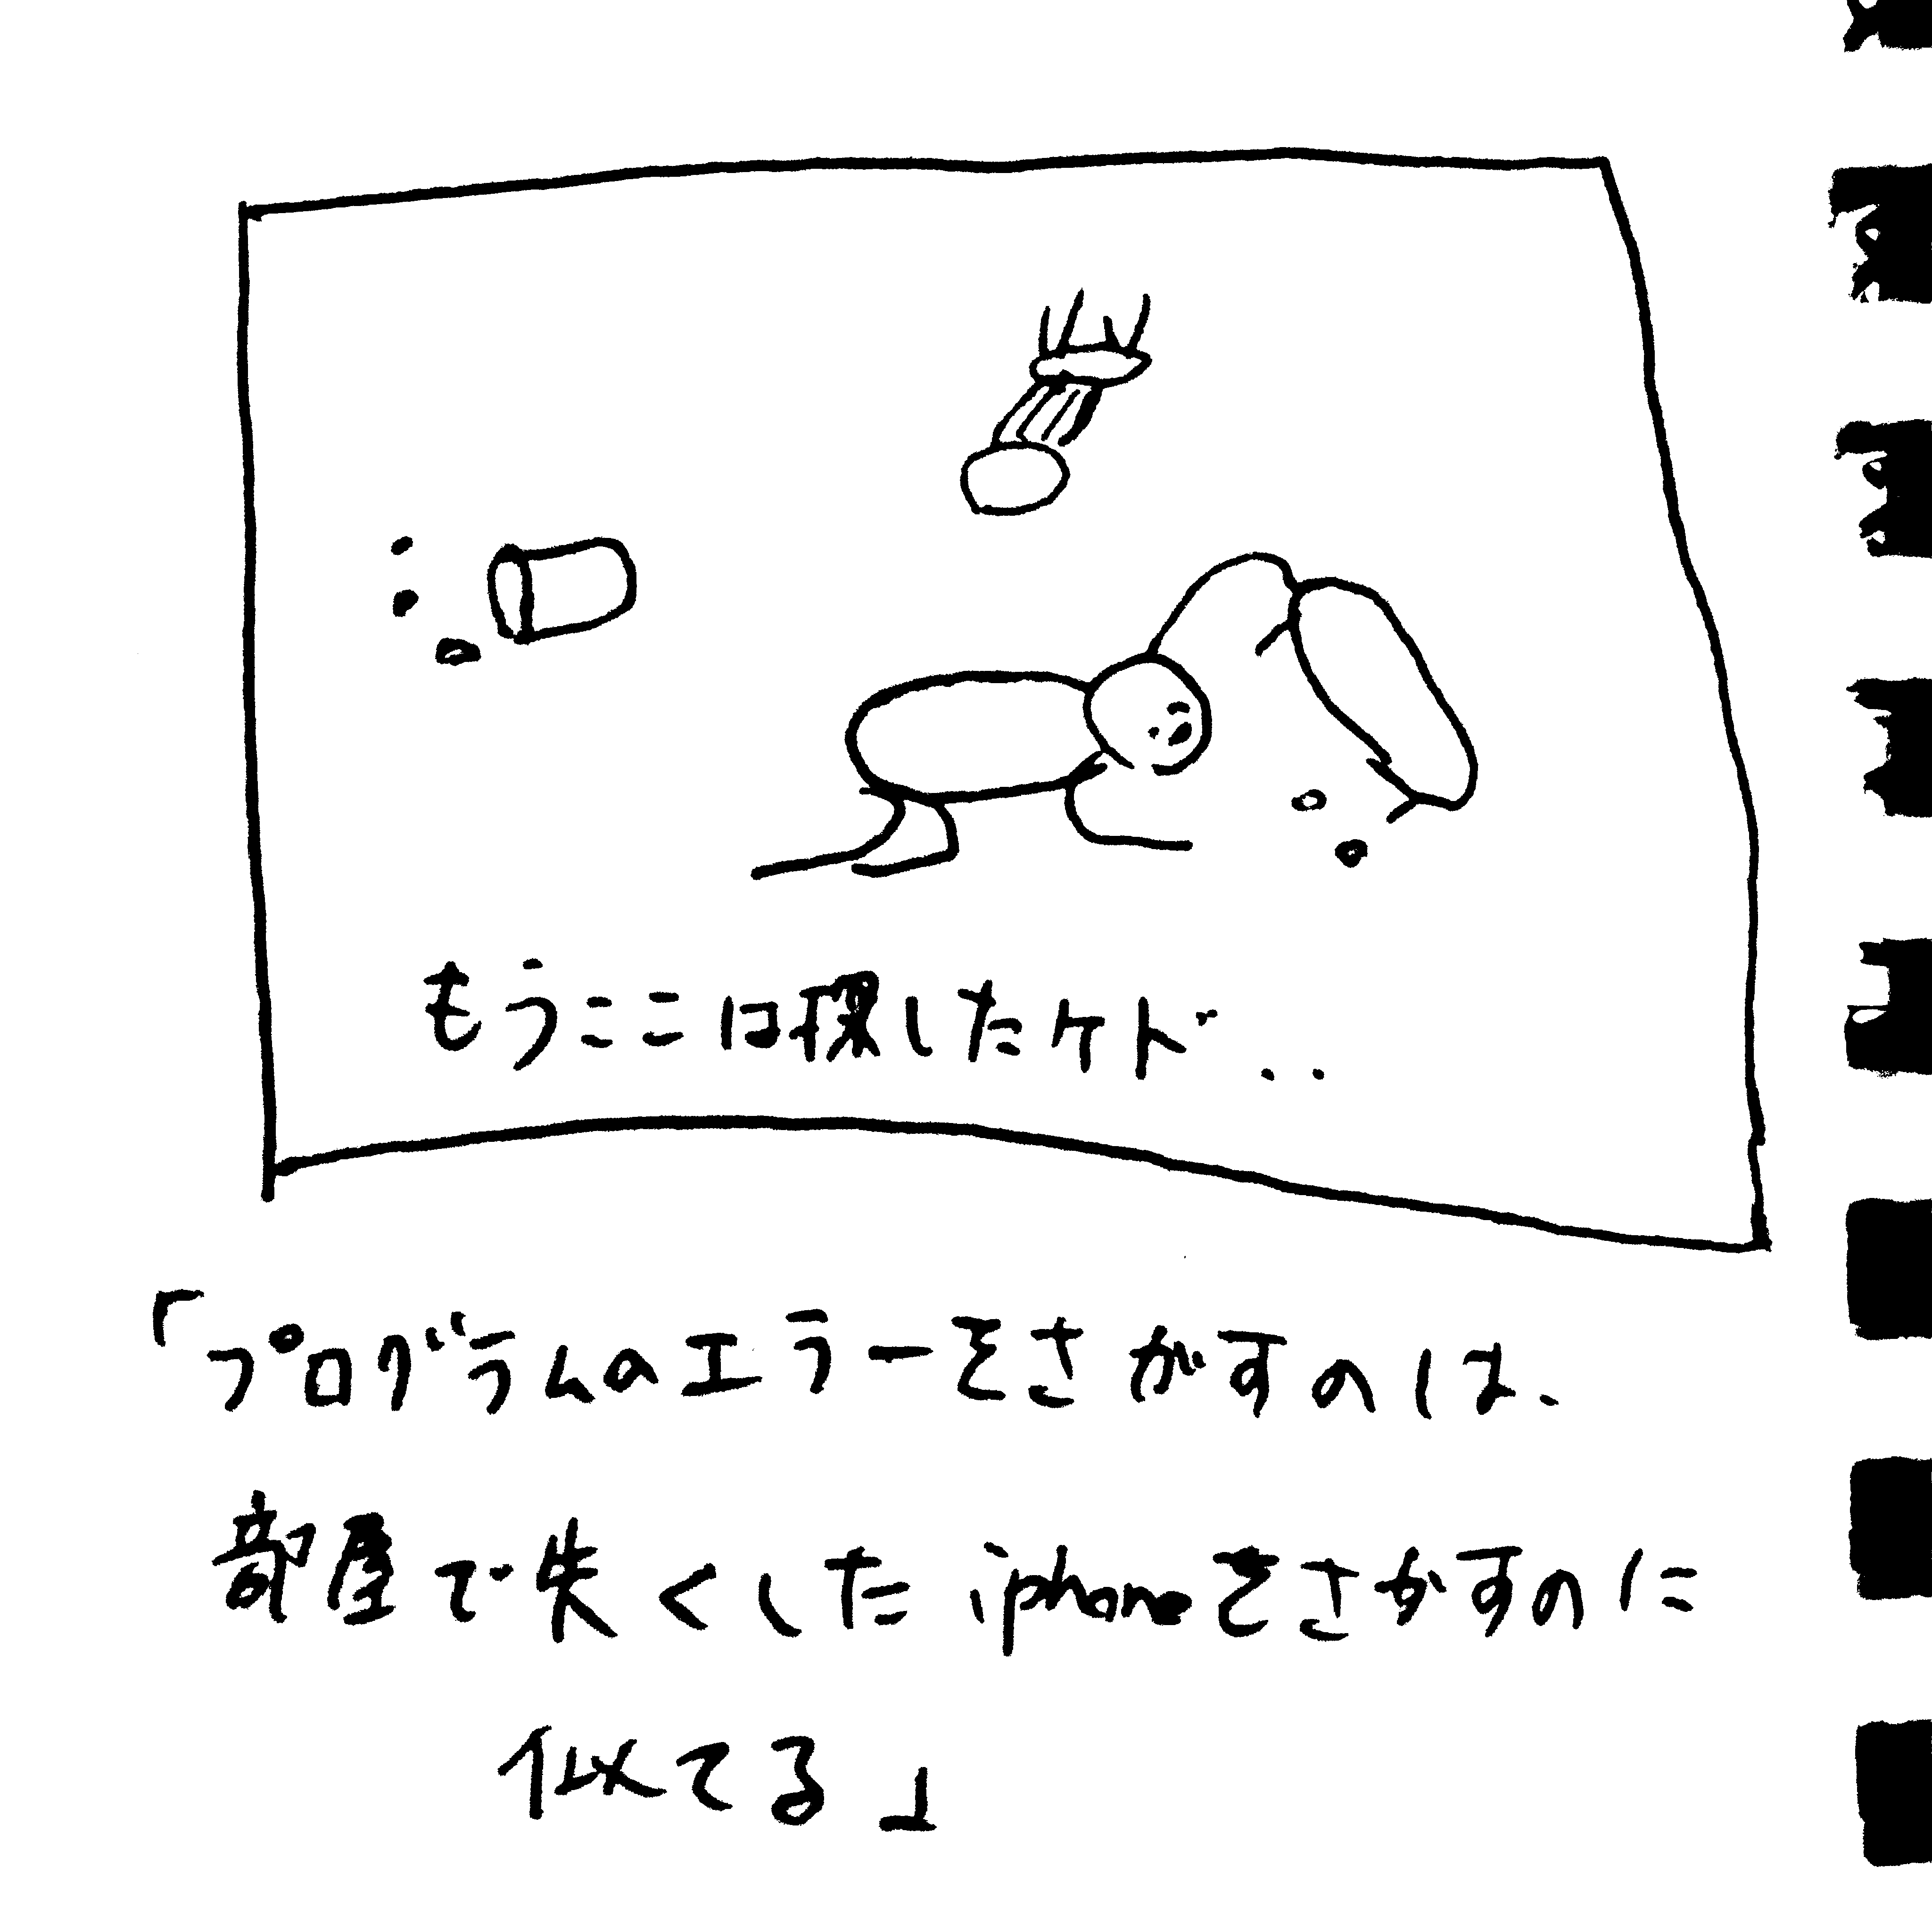 もうここは探したケド..
「プログラムのエラーをさがすのは、
部屋で失くしたiphoneをさがすのに
似てる」